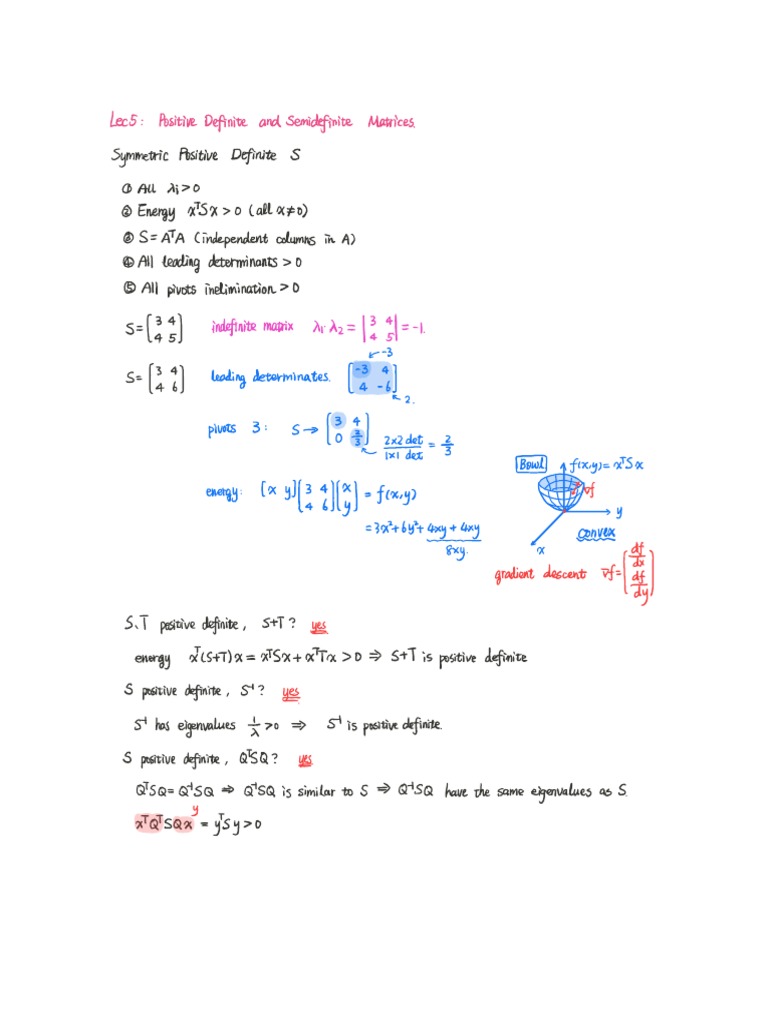 Lec5: Positive Definite and Semidefinite Matrices.
Symmetric Positive Definite S
① All λi>0
② Energy xᵀSx>0 (all x≠0)
③ S=AᵀA (independent columns in A)
④ All leading determinants >0
⑤ All pivots inelimination >0
S=[3 4; 4 5] indefinite matrix λ₁·λ₂=|3 4; 4 5|=-1.
S=[3 4; 4 6] leading determinates. [-3 4; 4 -6] ←-3 ←2.
pivots 3: S→[3 4; 0 2/3] ← 2x2 det / 1x1 det = 2/3
Bowl f(x,y)=xᵀSx
∇f
y
x
convex
energy: [x y][3 4; 4 6][x; y]=f(x,y)
=3x²+6y²+4xy+4xy
8xy.
gradient descent ∇f=[df/dx; df/dy]
S、T positive definite, S+T? yes
energy xᵀ(S+T)x=xᵀSx+xᵀTx>0 ⇒ S+T is positive definite
S positive definite, S⁻¹? yes
S⁻¹ has eigenvalues 1/λ>0 ⇒ S⁻¹ is positive definite.
S positive definite, QᵀSQ? yes
QᵀSQ=Q⁻¹SQ ⇒ Q⁻¹SQ is similar to S ⇒ Q⁻¹SQ have the same eigenvalues as S.
y
xᵀQᵀSQx = yᵀSy>0